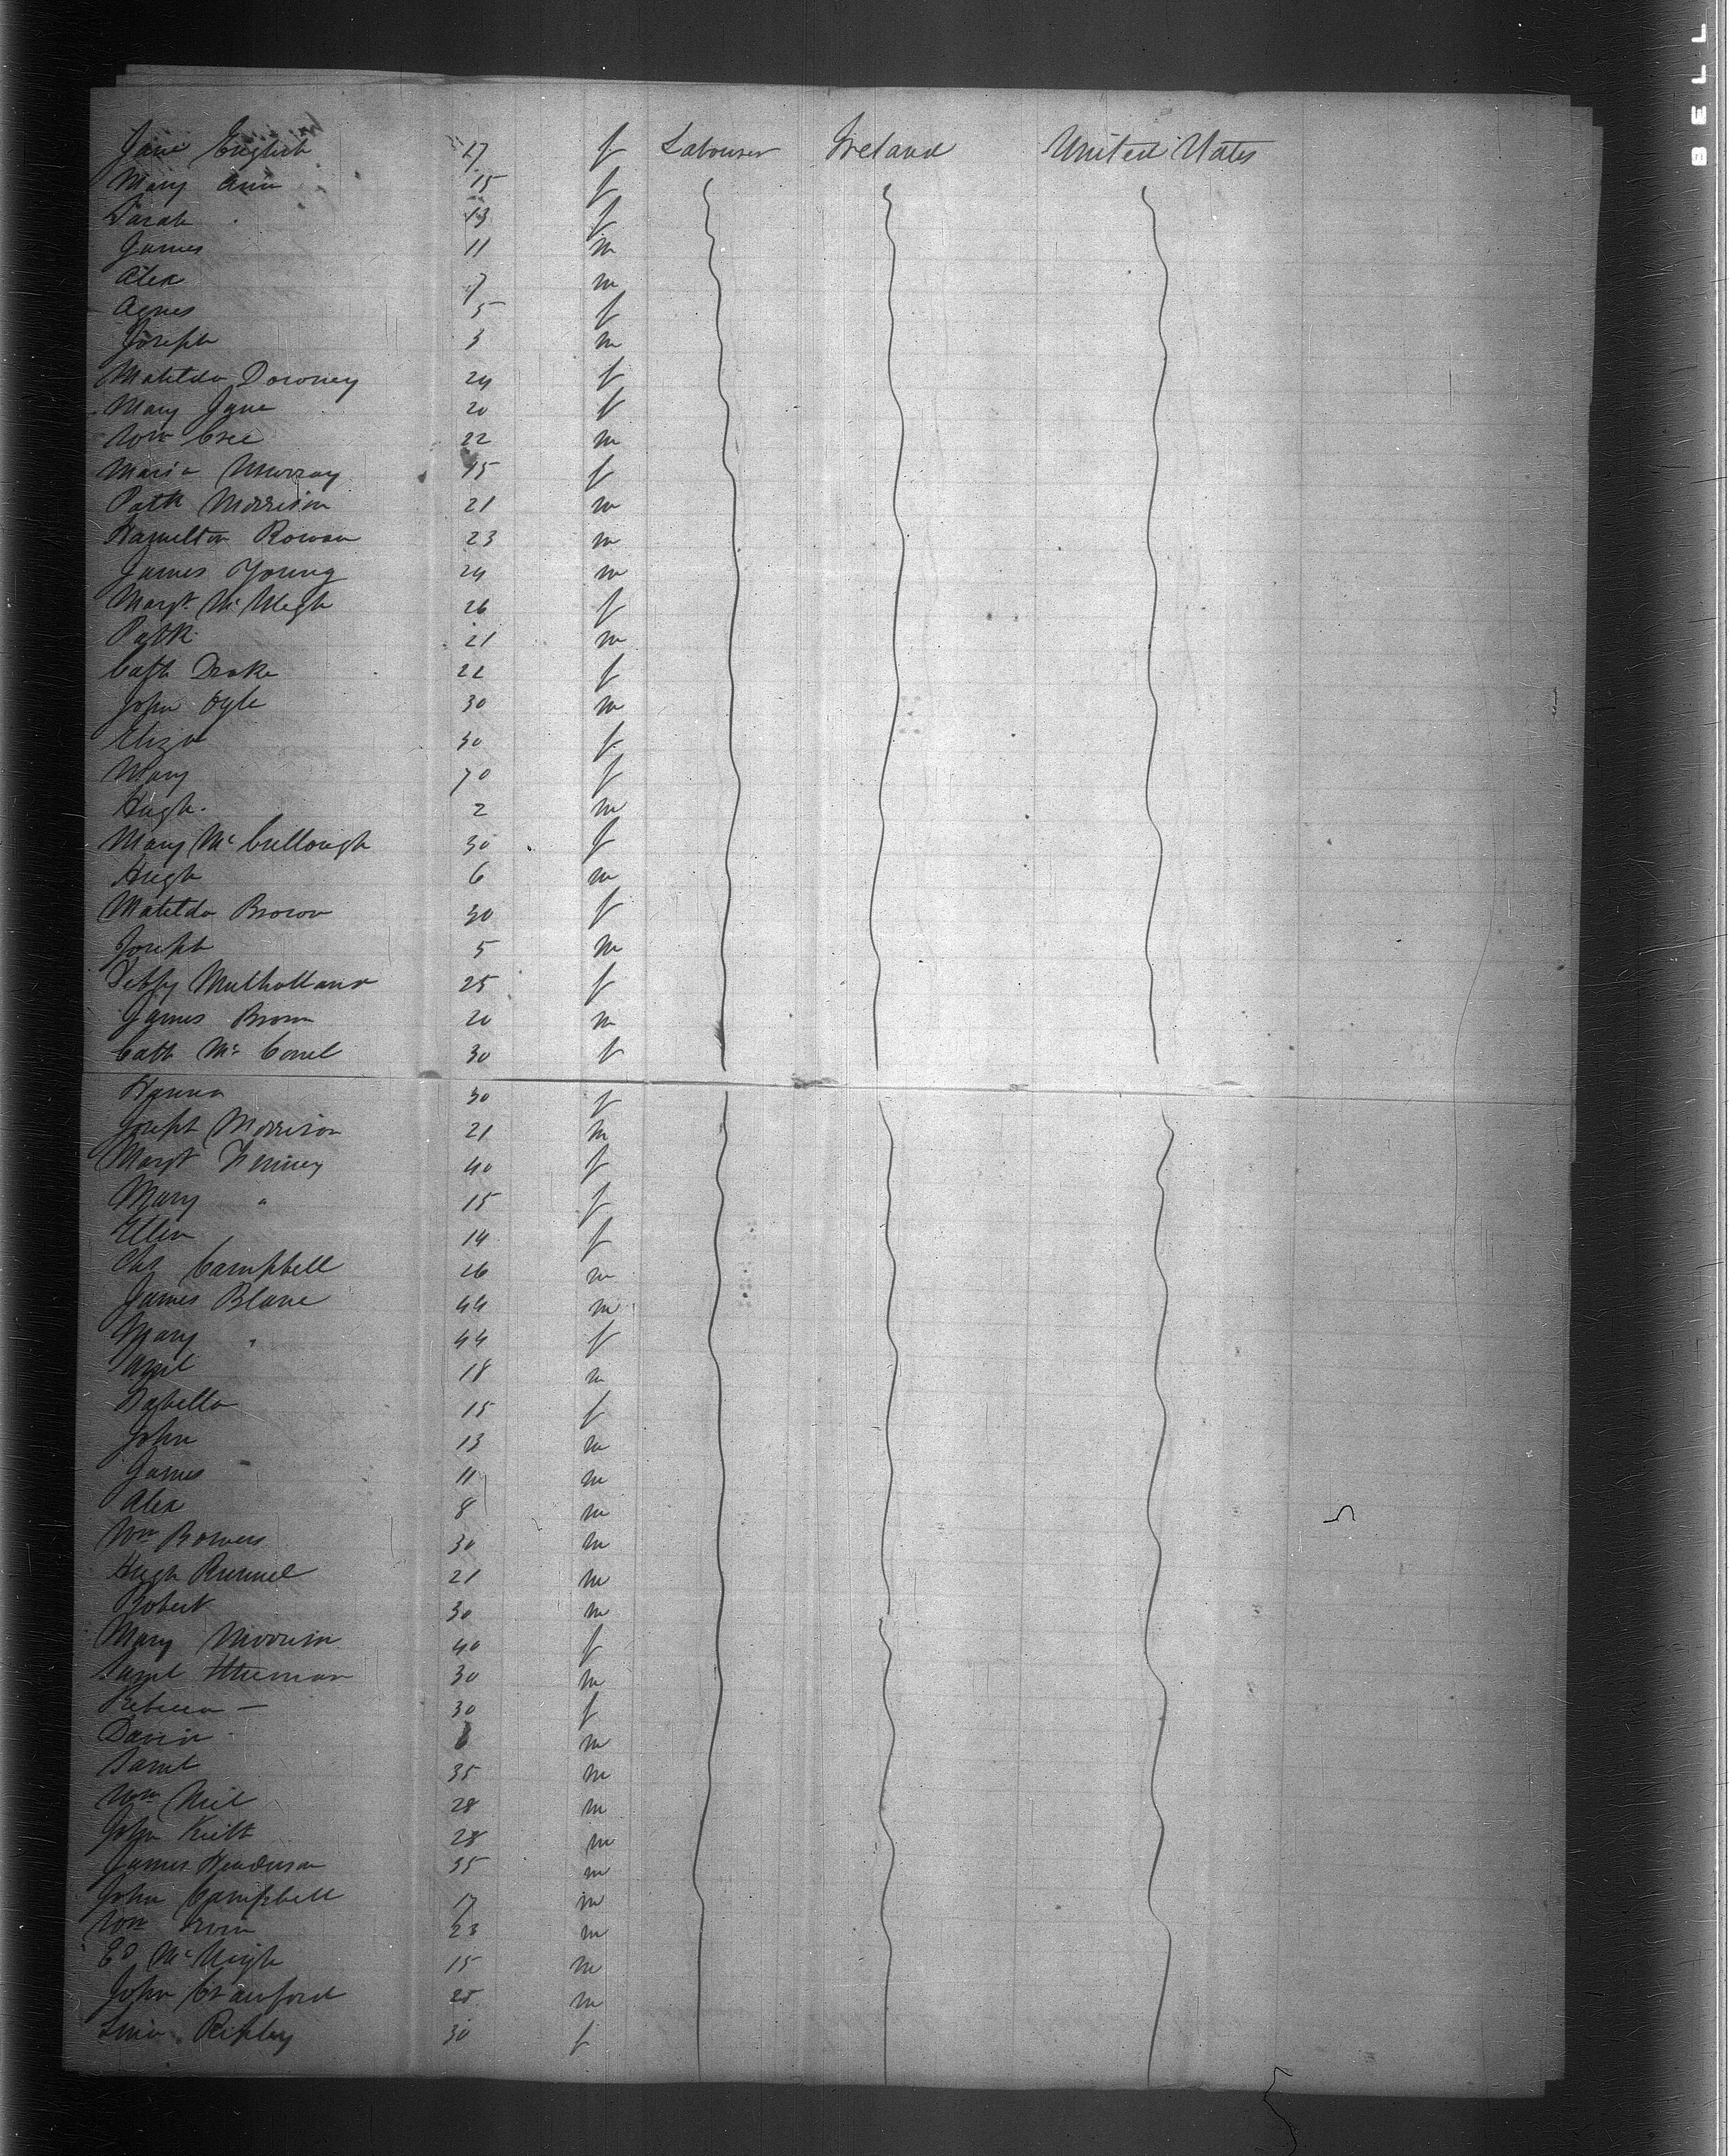 Jane English 17 f Labourer Ireland United States
Mary Ann 15 f
Sarah 13 f
James 11 m
Alex 7 m
Agnes 5 f
Joseph 3 m
Matilda Downey 24 f
Mary Jane 20 f
Wm Cree 22 m
Maria Murray 15 f
Patk Morrison 21 m
Hamilton Rowan 23 m
James Young 24 m
Margt Mc 26 f
Patk 21 m
Cath Drake 22 f
John Ogle 30 m
Eliza 30 f
Mary 70 f
Hugh 2 m
Mary Mc Cullough 30 f
Hugh 6 m
Matilda Brown 30 f
Joseph 5 m
Mulholland 25 f
James Brown 20 m
Cath Mc Connel 30 f
Hanna 30 f
Joseph Morrison 21 m
Margt 40 f
Mary " 15 f
Ellen 14 f
Chs Campbell 26 m
James Blane 44 m
Mary " 44 f
Saml 18 m
Isabella 15 f
John 13 m
James 11 m
Alex 8 m
Wm Bowers 30 m
Hugh 21 m
Robert 30 m
Mary 40 f
Saml 30 m
Rebecca — 30 f
David m
Saml 35 m
Wm Neil 28 m
John Keith 28 m
James Henderson 35 m
John Campbell 17 m
Wm Irvin 23 m
Ed Mc 15 m
John Crawford 25 m
Ripley 30 f
BELL